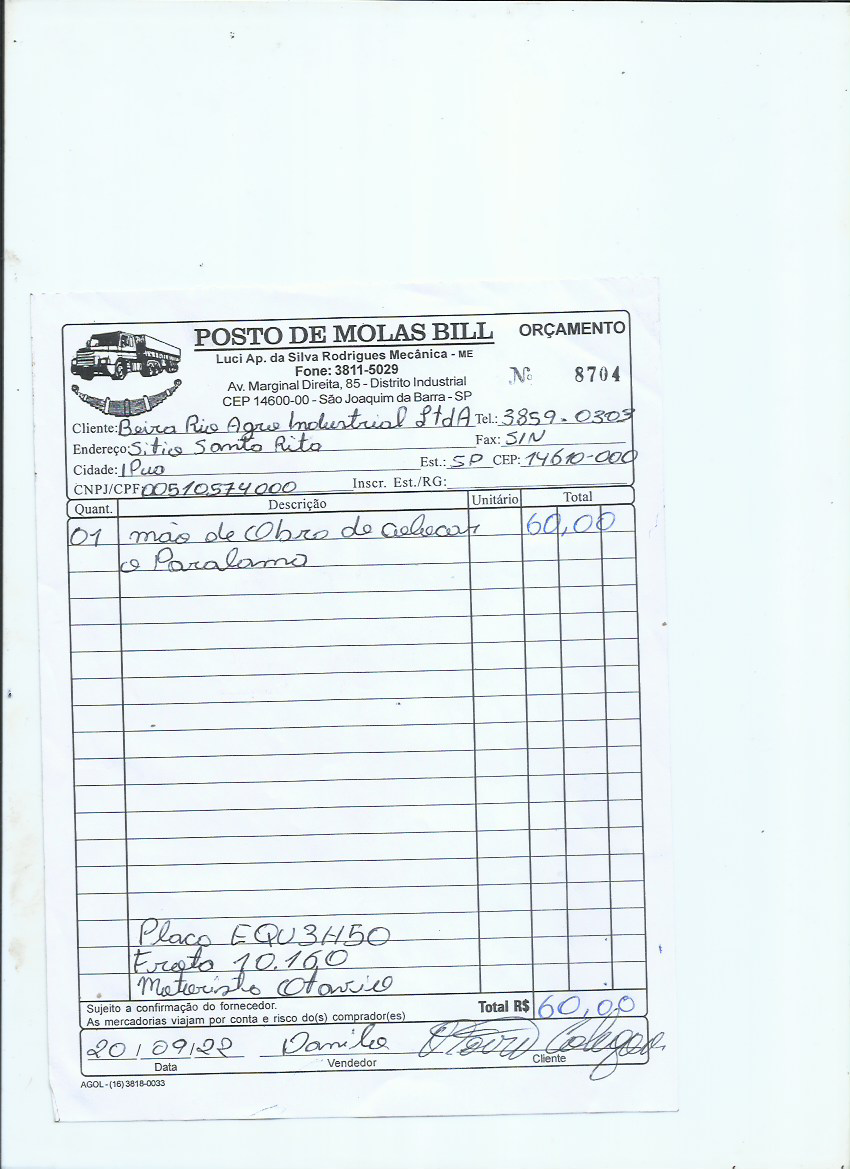 POSTO DE MOLAS BILL ORÇAMENTO
Luci Ap. da Silva Rodrigues Mecânica - ME
Fone: 3811-5029
Nº 8704
Av. Marginal Direita, 85 - Distrito Industrial
CEP 14600-00 - São Joaquim da Barra - SP
Cliente: Beira Rio Agro Industrial LtdA Tel.: 3859-0303
Endereço: Sitio Santa Rita Fax: S/N
Cidade: IPua Est.: SP CEP: 14610-000
CNPJ/CPF 00510574000 Inscr. Est./RG:
Quant. Descrição Unitário Total
01 mão de Obra de 60,00
o Paralama
Placa EQU3H50
10.160
Motorista Otavio
Sujeito a confirmação do fornecedor.
As mercadorias viajam por conta e risco do(s) comprador(es)
Total R$ 60,00
20/09/22 Danilo
Data Vendedor Cliente
AGOL - (16) 3818-0033